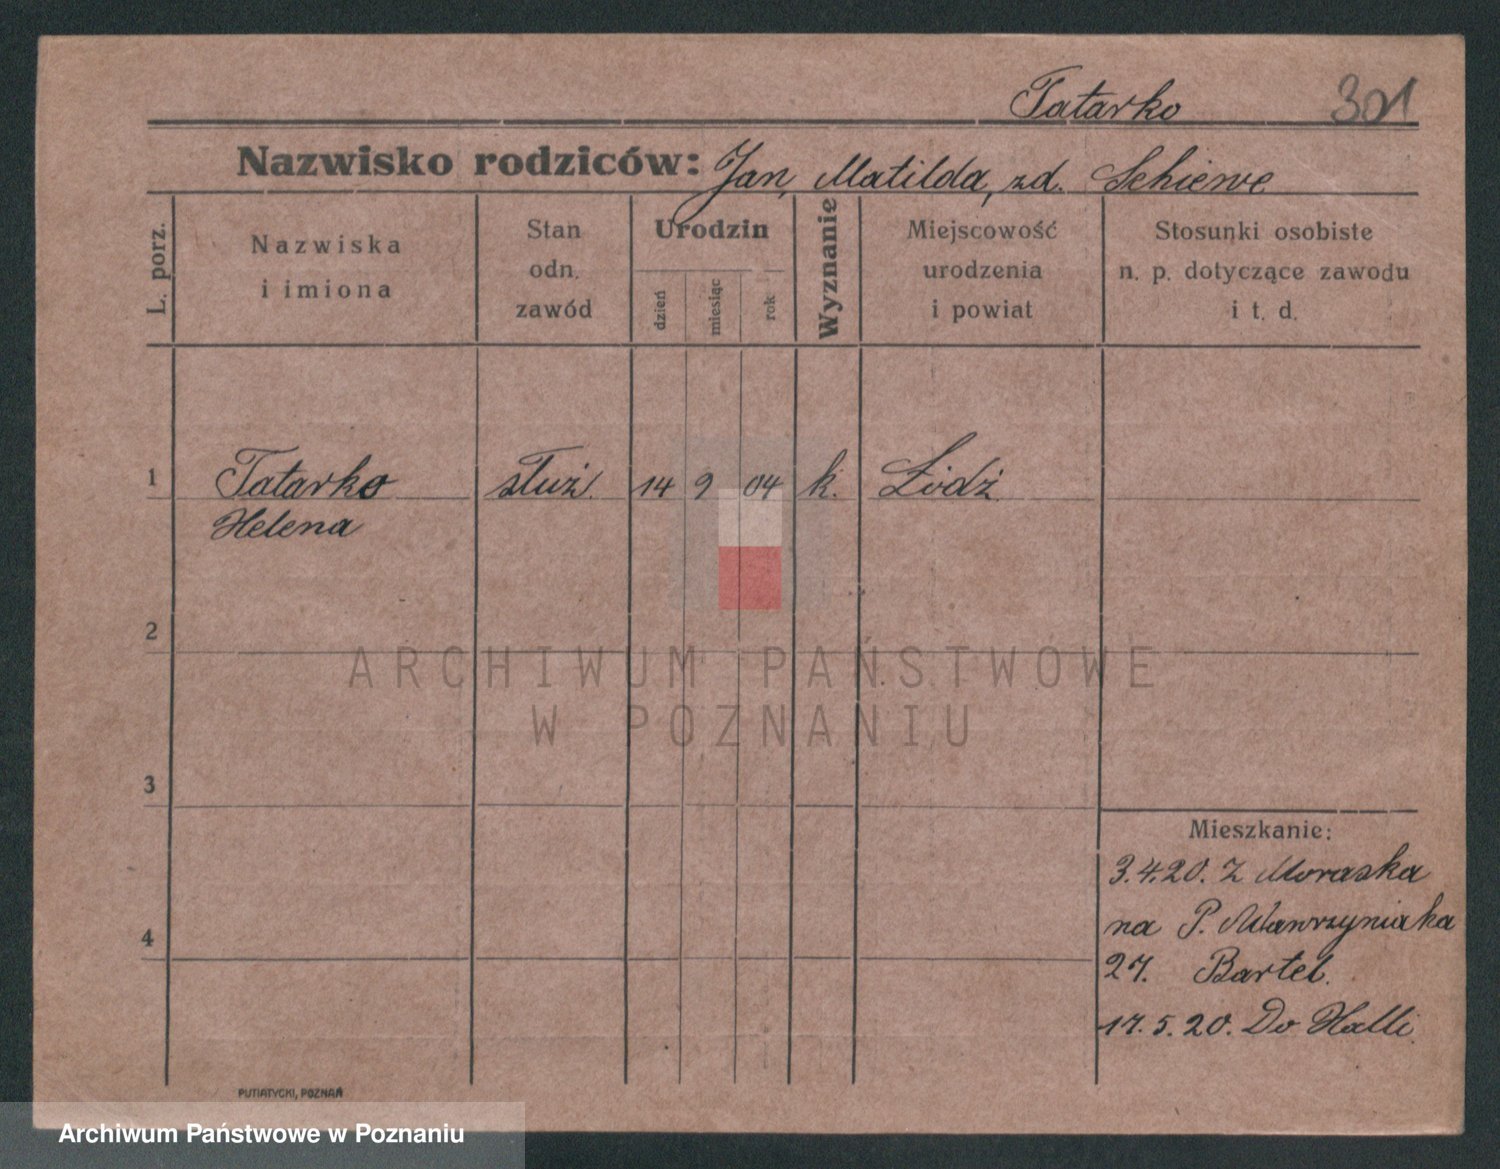 Tatarko 301
Nazwisko rodziców: Jan, Matilda, zd. Schiewe
L. porz.
Nazwiska
i imiona
Stan
odn.
zawód
Urodzin
dzień
miesiąc
rok
Wyznanie
Miejscowość
urodzenia
i powiat
Stosunki osobiste
n. p. dotyczące zawodu
i t. d.
1 Tatarko służ. 14 9 04 k. Łódź
Helena
2
ARCHIWUM PAŃSTWOWE
W POZNANIU
3
Mieszkanie:
3.4.20. Z Moraska
na P. Wawrzyniaka
4
27. Bartel.
17.5.20. Do Halli
PUTIATYCKI, POZNAŃ
Archiwum Państwowe w Poznaniu